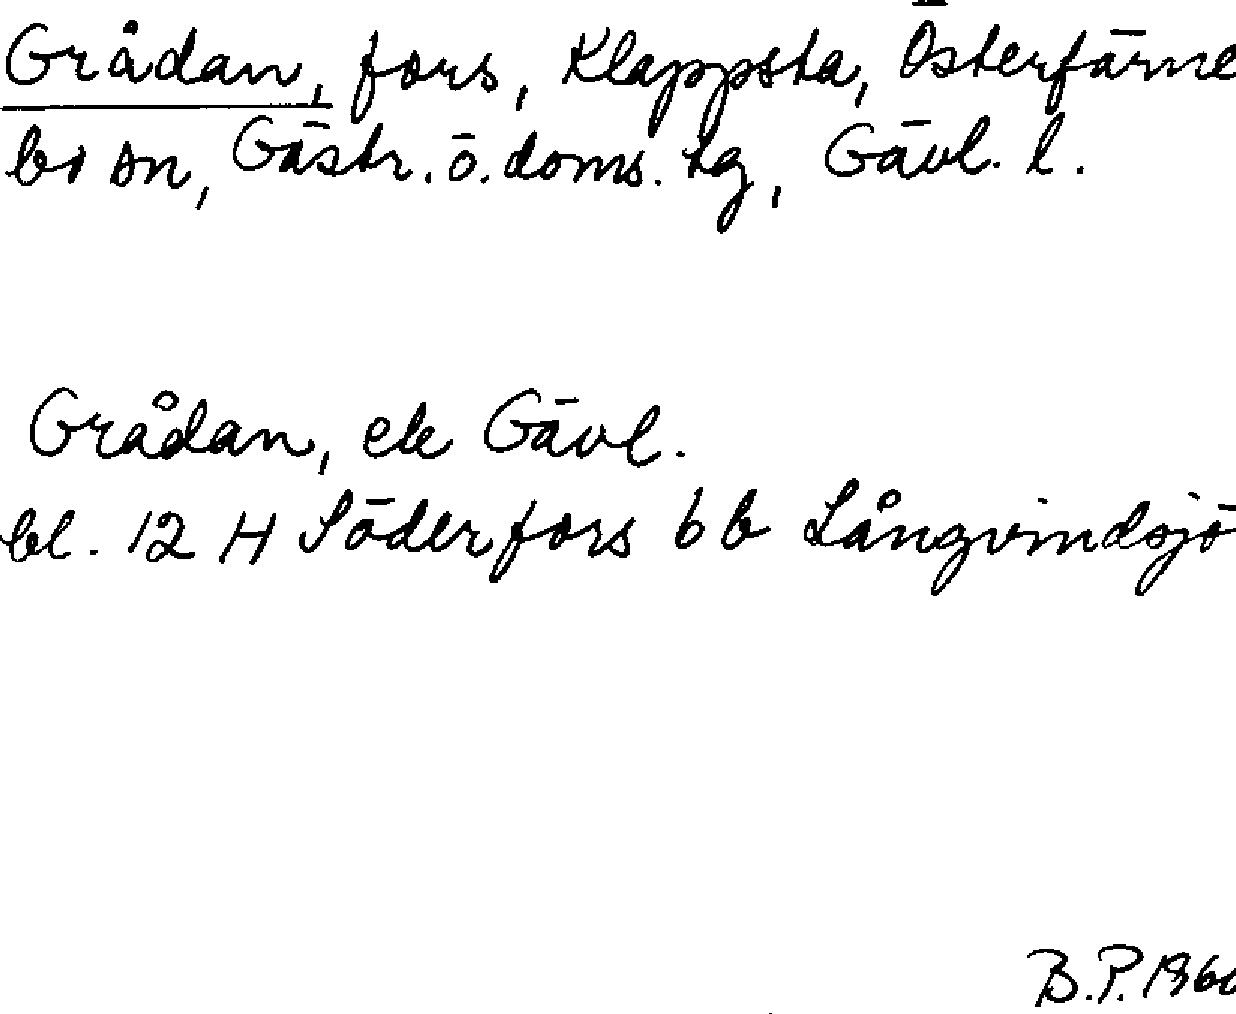 Grådan, fors, Klappsta, Österfärne
bo sn, Gästr. ö. doms. tg, Gävl. l.
Grådan, ek Gävl.
bl. 12 H Söderfors 6 b Långvindsjö
B.P. 196